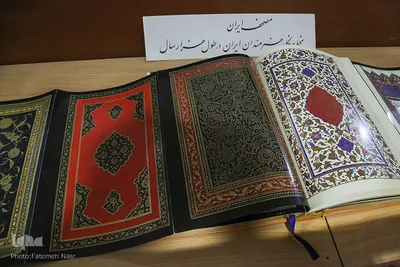 مصحف ایران
هنرمندان ایران در طول هزار سال
Photo:Fatemeh Nasr